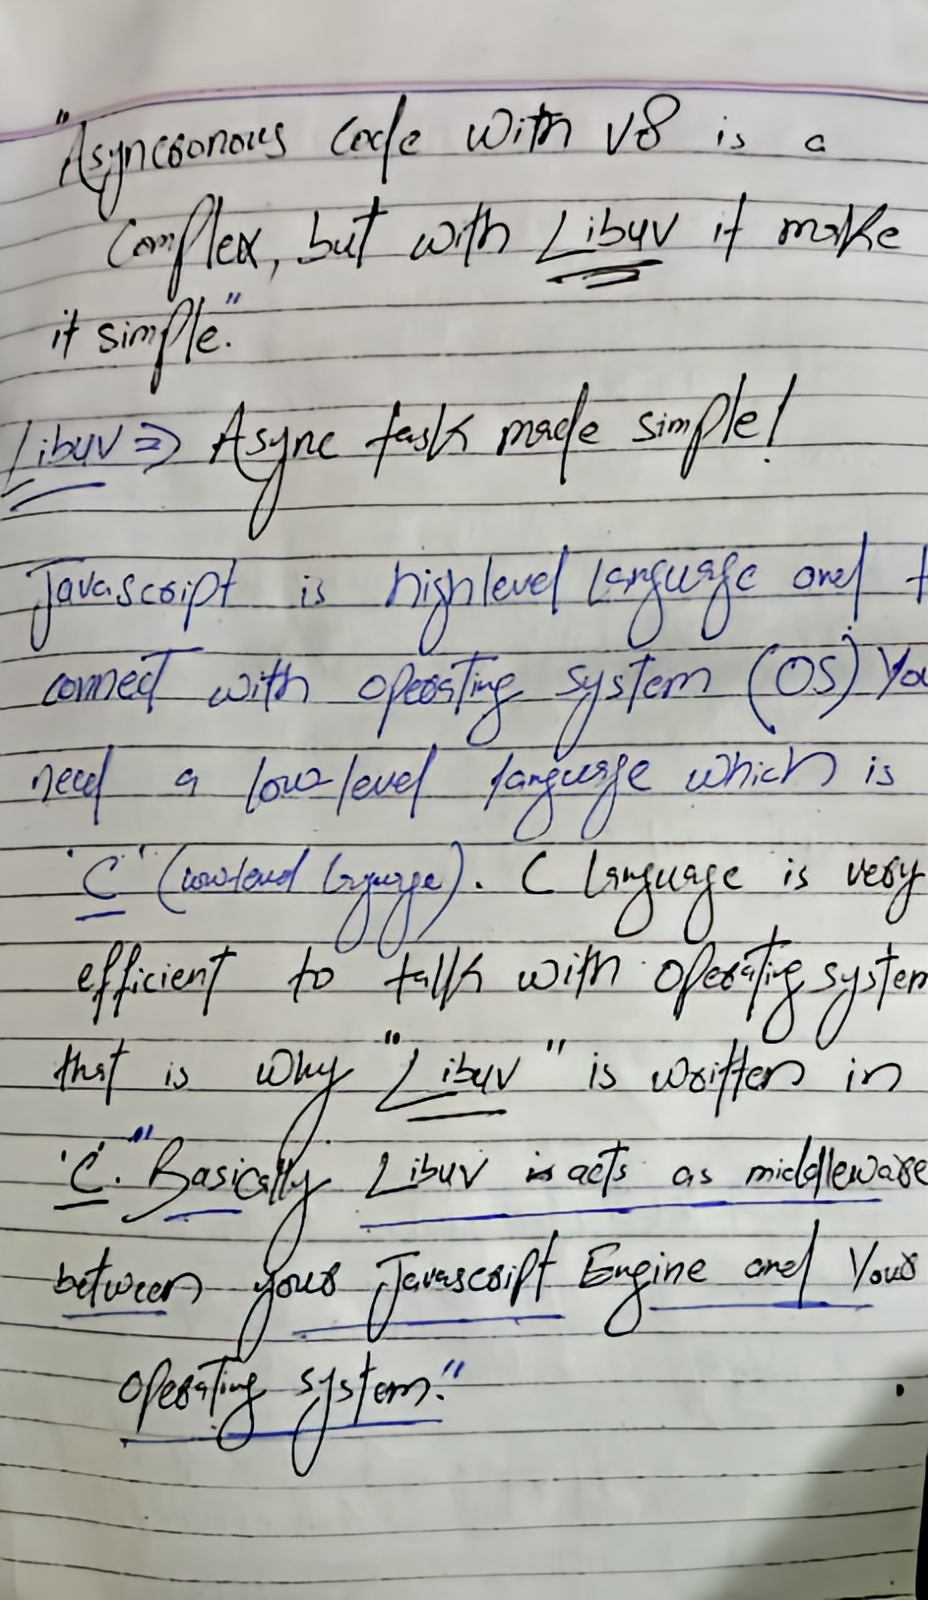 "Asyncronous Code with V8 is a
Complex, but with Libuv it make
it simple."
Libuv => Async task made simple!
Javascript is highlevel language and t
connect with operating system (OS) You
need a low level language which is
'C' (low level language). C language is very
efficient to talk with operating system
that is why "Libuv" is written in
'C'. "Basically Libuv is acts as middleware
between your Javascript Engine and Your
operating system."